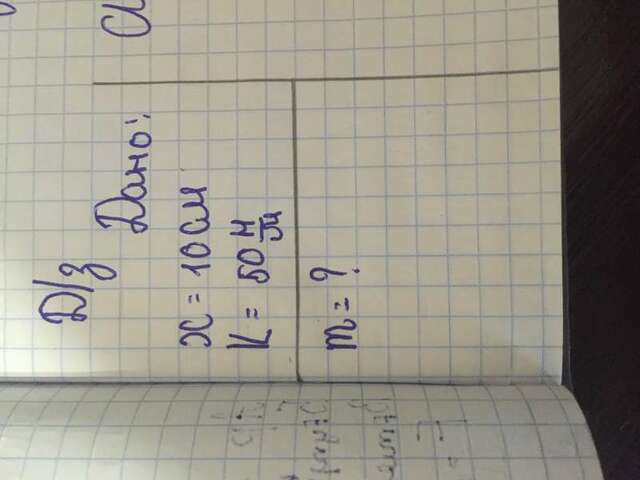 Д/з
Дано:
x = 10 см
K = 50 Н/м
m = ?